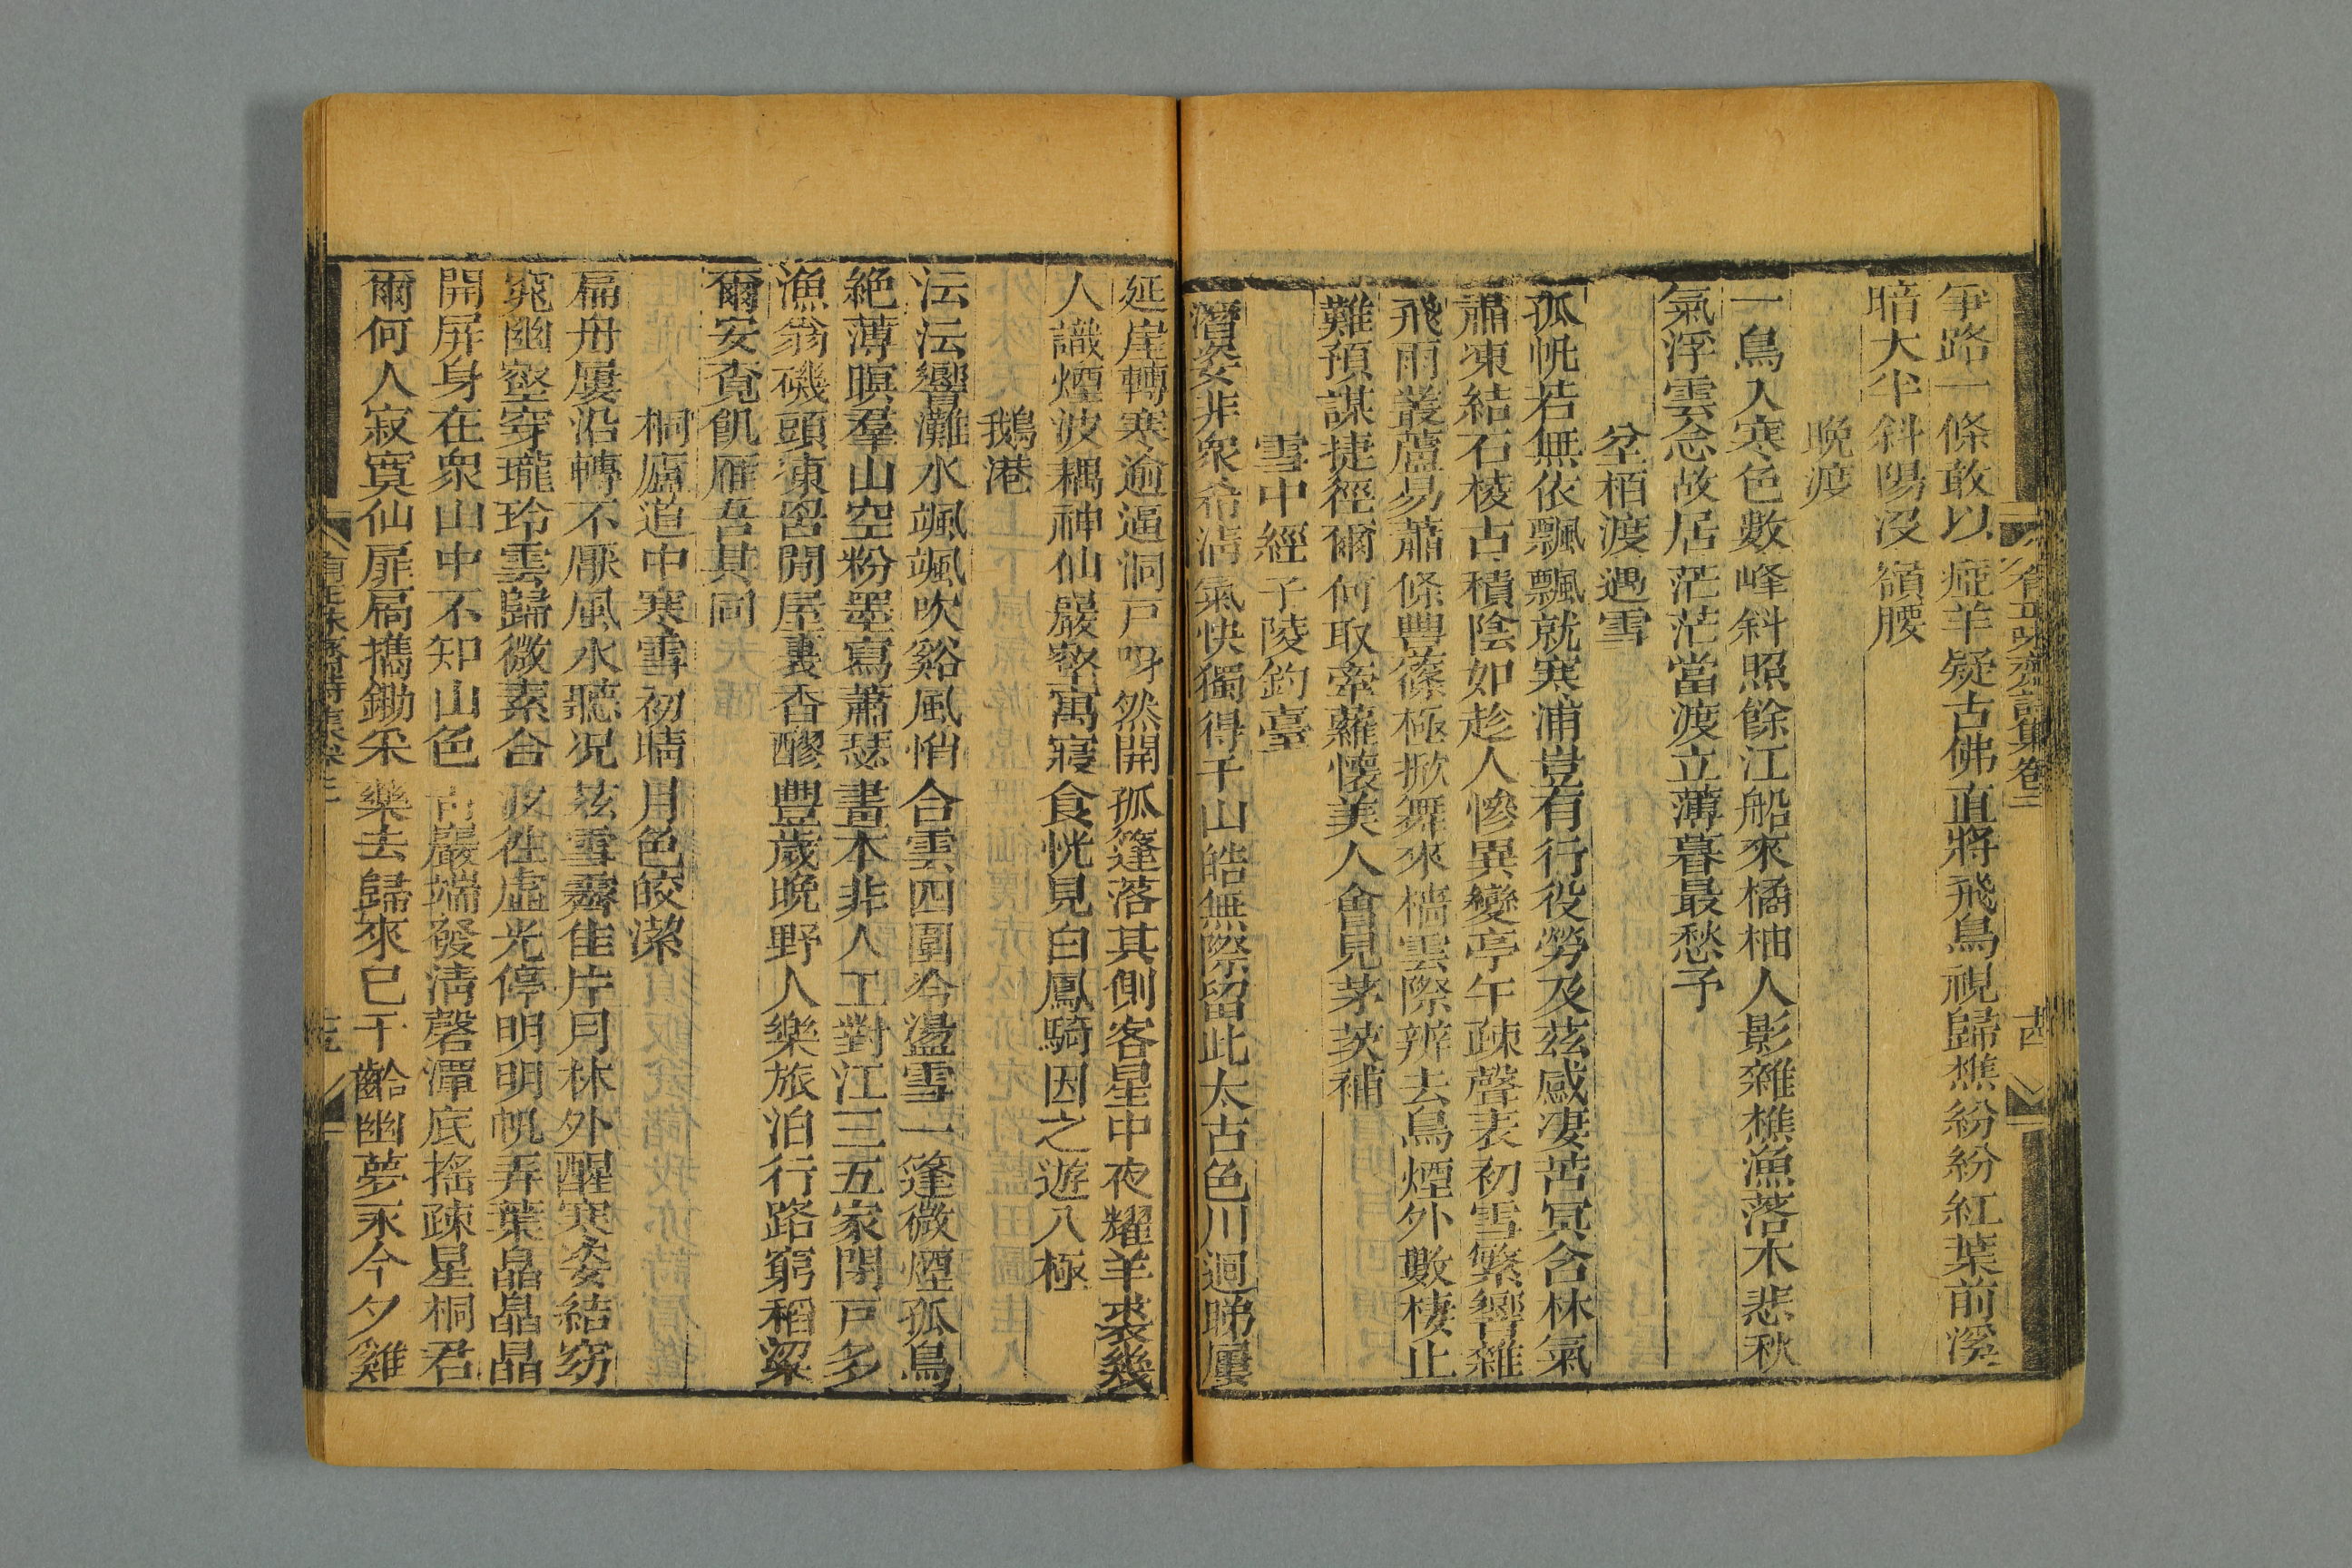 爭路一條敢以瘂羊疑古佛直將飛鳥視歸樵紛紛紅葉前溪
暗大半斜陽没嶺腰
晚渡
一鳥入寒色數峰斜照餘江船來橘柚人影雜樵漁落木悲秋
氣浮雲念故居茫茫當渡立薄暮最愁予
坌栢渡遇雪
孤帆若無依飄飄就寒浦豈有行役勞及茲感凄苦冥合林氣
肅凍結石棱古積陰如趁人慘異變亭午疎聲表初雪繁響雜
飛雨叢蘆易蕭條豐篠極掀舞來檣雲際辨去鳥煙外數棲止
難預謀捷徑爾何取牽蘿懷美人會見茅茨補
雪中經子陵釣臺
濳姿非衆希沾氣快獨得千山皓無際留此太古色川迴睇屢
延崖轉寒逾逼洞戸呀然開孤篷落其側客星中夜耀羊裘幾
人識煙波耦神仙巖壑寓寢食恍見白鳳騎因之遊八極
鵝港
沄沄響灘水颯颯吹谿風悄合雲四圍冷盪雪一篷微煙孤鳥
絶薄暝羣山空粉墨寫蕭瑟畫本非人工對江三五家閉戸多
漁翁磯頭凍罾閒屋裏香醪豐歲晚野人樂旅泊行路窮稻粱
爾安覓飢雁吾其同
桐廬道中寒雪初晴月色皎潔
扁舟屢沿轉不厭風水聽况茲雪霽佳片月林外醒寒姿結窈
窕幽壑穿瓏玲雲歸微素合波徃虛光停明明帆弄葉晶晶晶
開屏身在衆山中不知山色 巖端發淸磬潭底搖疎星桐君
爾何人寂寞仙扉扃攜鋤采藥去歸來已千齡幽夢永今夕雞